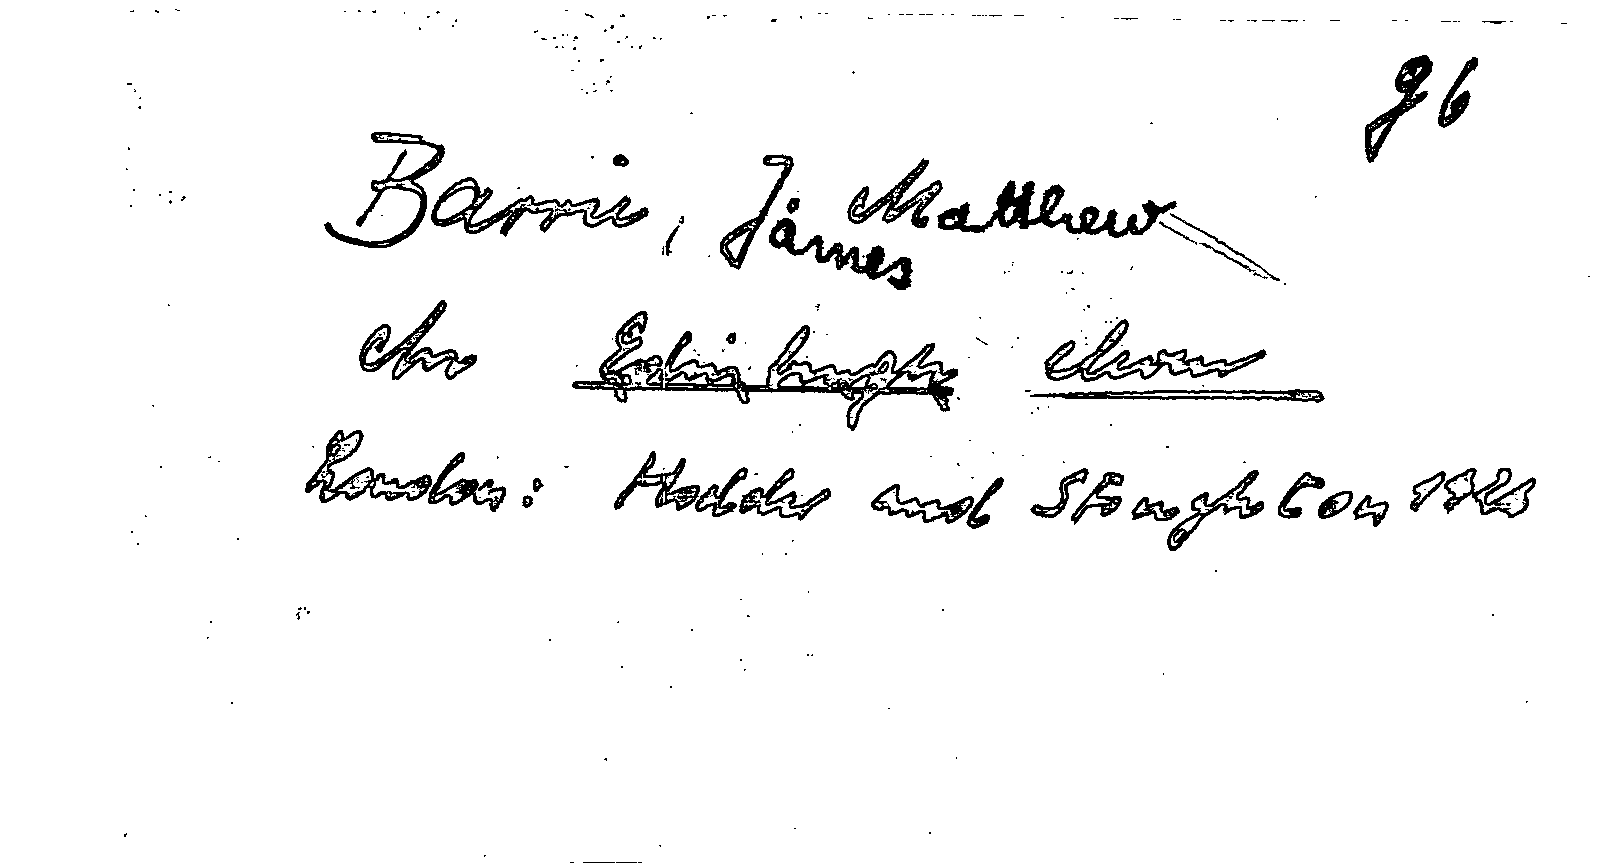 96
Barrie, James Matthew
An Edinburgh eleven
London: Hodder and Stoughton